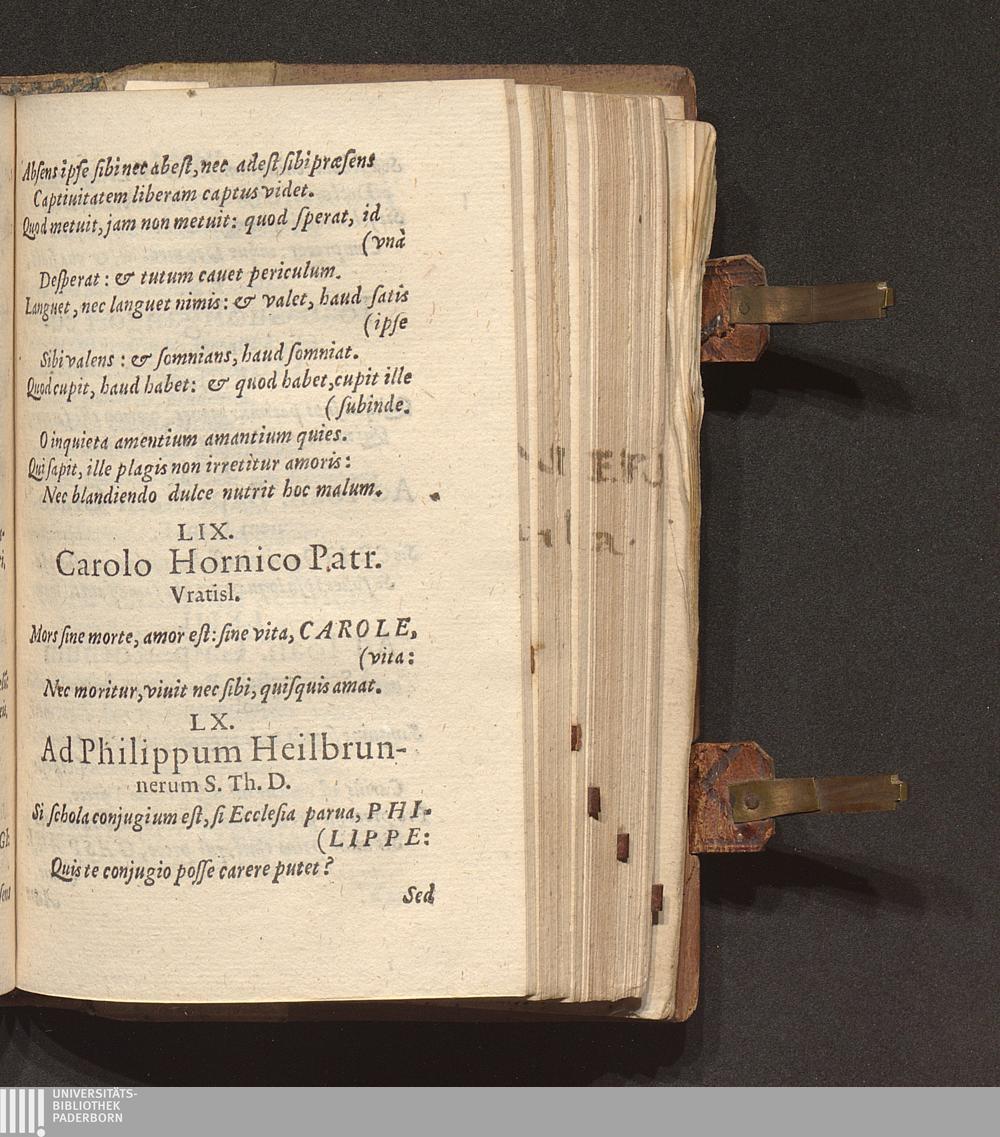 Abſens ipſe ſibi nec abeſt, nec adeſt ſibi præſens
Captiuitatem liberam captus videt.
Quod metuit, jam non metuit: quod ſperat, id
(vnà
Deſperat: & tutum cauet periculum.
Languet, nec languet nimis: & valet, haud ſatis
(ipſe
Sibi valens: & ſomnians, haud ſomniat.
Quod cupit, haud habet: & quod habet, cupit ille
(ſubinde.
O inquieta amentium amantium quies.
Qui ſapit, ille plagis non irretitur amoris:
Nec blandiendo dulce nutrit hoc malum.
LIX.
Carolo Hornico Patr.
Vratisl.
Mors ſine morte, amor eſt: ſine vita, CAROLE,
(vita:
Nec moritur, viuit nec ſibi, quiſquis amat.
LX.
Ad Philippum Heilbrun-
nerum S. Th. D.
Si ſchola conjugium eſt, ſi Eccleſia parua, PHI-
(LIPPE:
Quis te conjugio poſſe carere putet?
Sed
UNIVERSITÄTS-
BIBLIOTHEK
PADERBORN